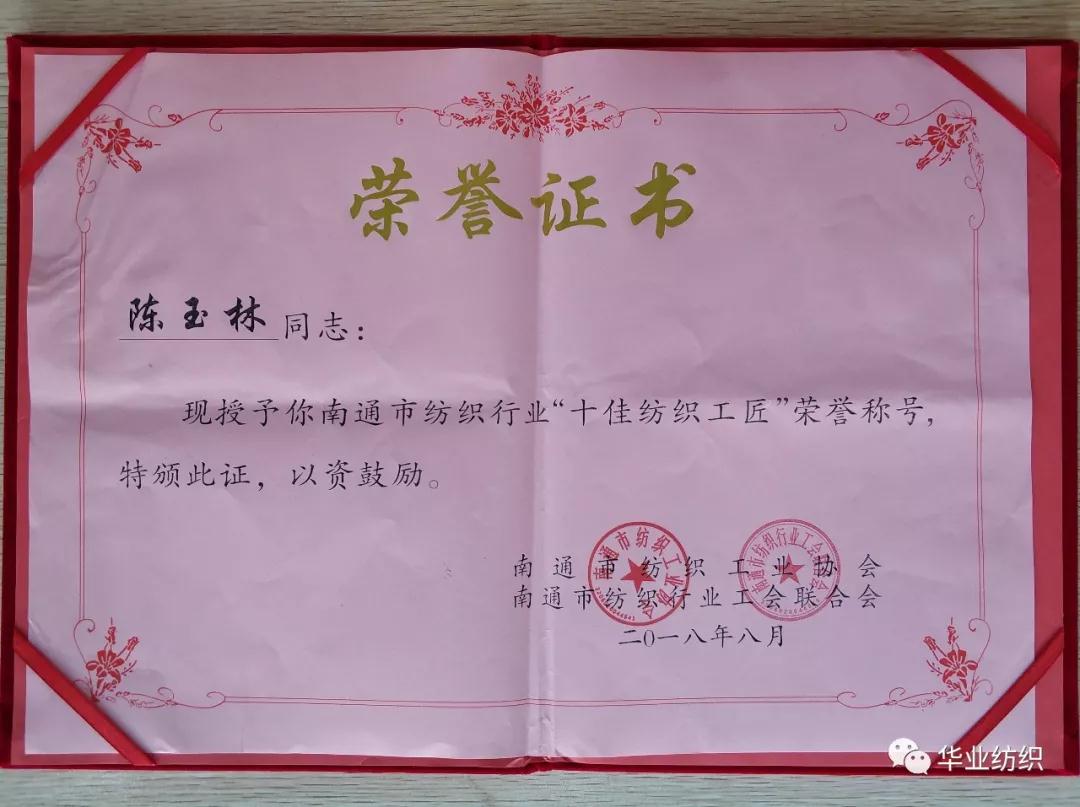 荣誉证书
陈玉林同志：
现授予你南通市纺织行业“十佳纺织工匠”荣誉称号，
特颁此证，以资鼓励。
南通市纺织工业协会
南通市纺织行业工会联合会
二〇一八年八月
南通市纺织工业协会
南通市纺织行业工会联合会
华业纺织